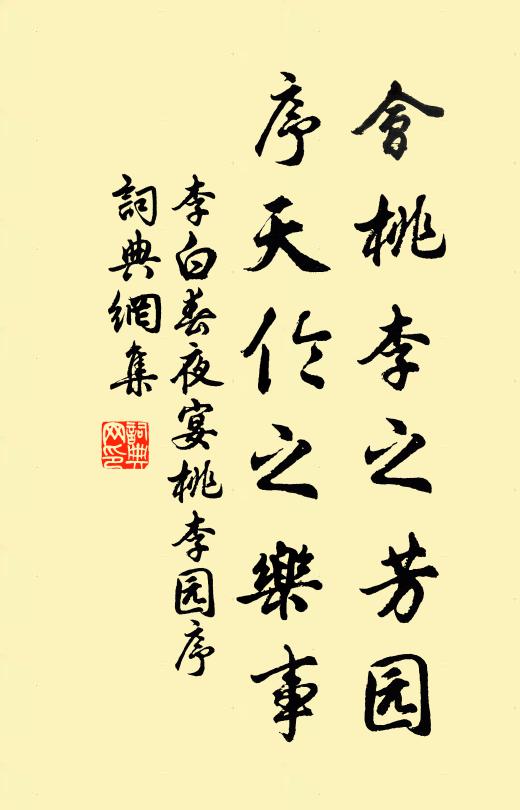 會桃李之芳园
序天伦之樂事
李白春夜宴桃李园序
詞典網集
詞典
网印